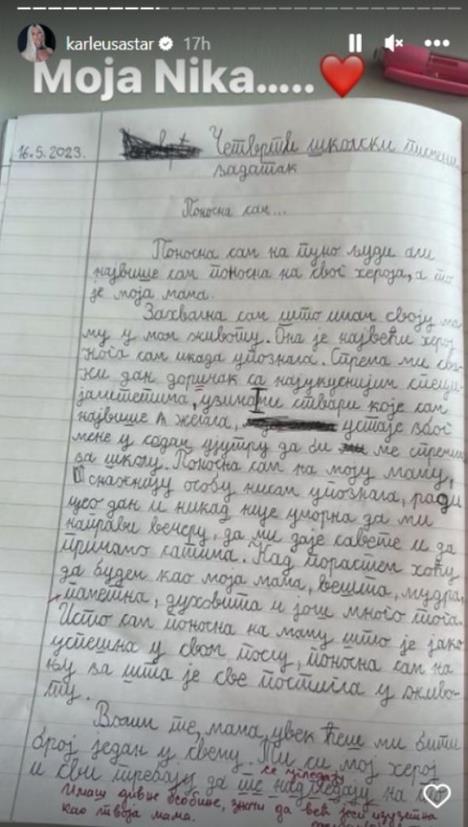 karleusastar 17h
Моја Nika.....
16.5.2023. Четврти школски писмени
задатак
Поносна сам...
Поносна сам на пуно људи али
највише сам поносна на свог хероја, а то
је моја мама.
Захвална сам што имам своју ма
му у мом животу. Она је највећи херој
кога сам икада упознала. Спрема ми сва
ки дан доручак са најукуснијим специ
јалитетима, узима ми ствари које сам
највише желела, устаје због
мене у седам ујутру да би ме спреми
за школу. Поносна сам на моју маму,
снажнију особу нисам упознала, ради
цео дан и никад није уморна да ми
направи вечеру, да ми даје савете и да
причамо сатима. Кад порастем хоћу
да будем као моја мама, вешта, мудра,
паметна, духовита и још много тога.
Исто сам поносна на маму што је јако
успешна у свом послу, поносна сам на
њу за шта је све постигла у живо
ту.
Волим те, мама, увек ћеш ми бити
број један у свему. Ти си мој херој
се угледају
и сви требају да те надгледају на
Имаш дивне особине, значи да већ јеси изузетна
као твоја мама.